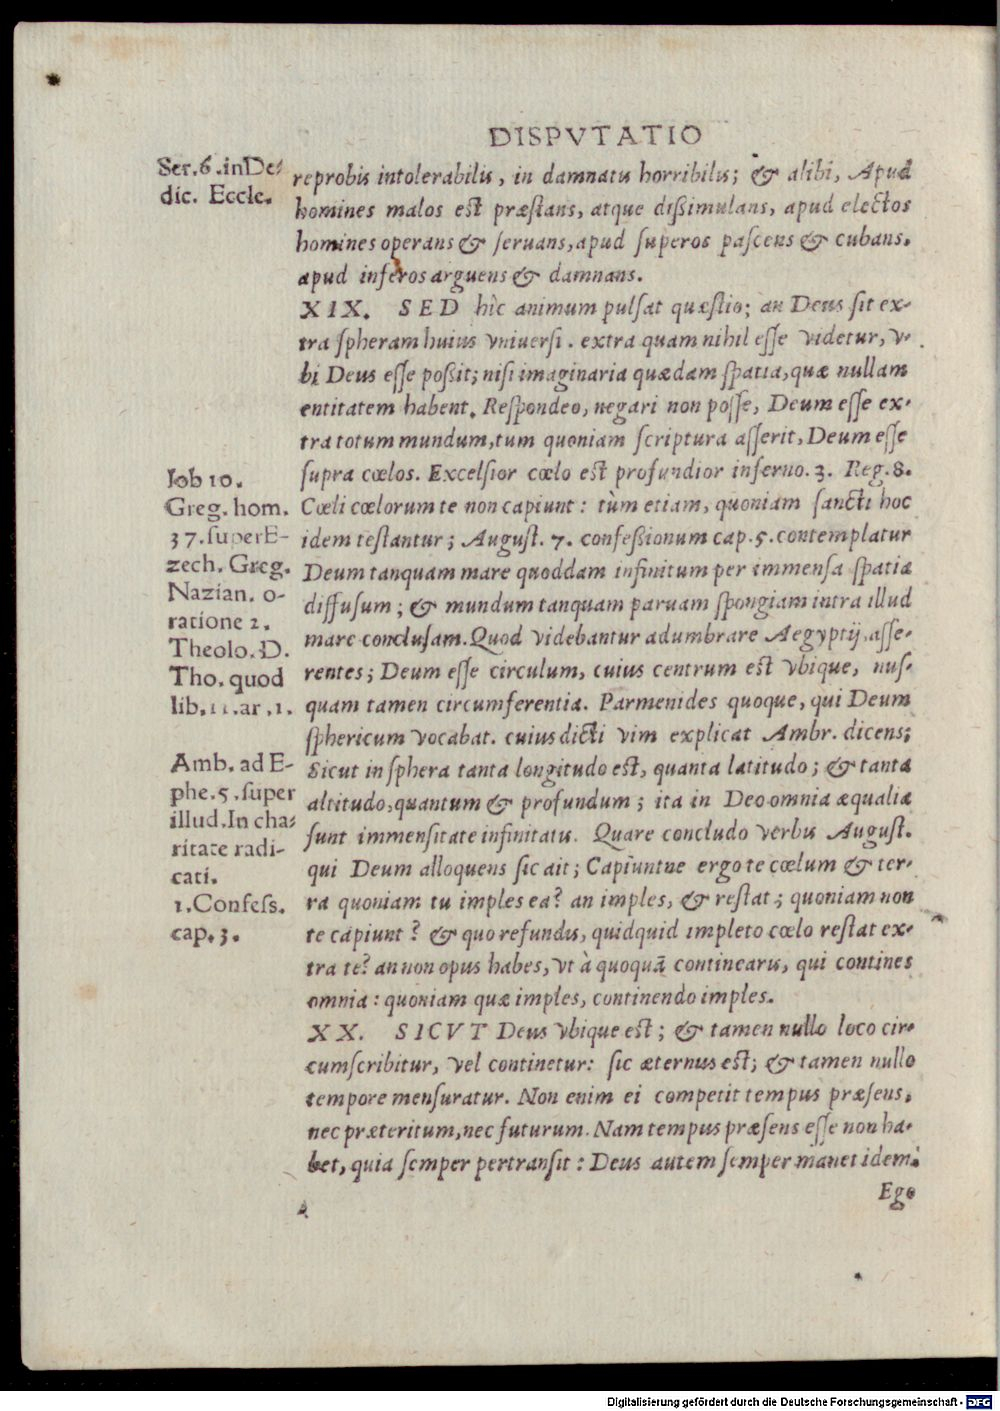 DISPVTATIO
Ser. 6. in De-
dic. Eccle.
reprobis intolerabilis, in damnatis horribilis; & alibi, Apud
homines malos est præstans, atque dißimulans, apud electos
homines operans & seruans, apud superos pascens & cubans.
apud inferos arguens & damnans.
XIX. SED hîc animum pulsat quæstio; an Deus sit ex-
tra spheram huius vniuersi. extra quam nihil esse videtur, v-
bi Deus esse poßit; nisi imaginaria quædam spatia, quæ nullam
entitatem habent. Respondeo, negari non posse, Deum esse ex-
tra totum mundum, tum quoniam scriptura asserit, Deum esse
supra cœlos. Excelsior cœlo est profundior inferno. 3. Reg. 8.
Cœli cœlorum te non capiunt: tùm etiam, quoniam sancti hoc
idem testantur; August. 7. confeßionum cap. 5. contemplatur
Deum tanquam mare quoddam infinitum per immensa spatia
diffusum; & mundum tanquam paruam spongiam intra illud
mare conclusam. Quod videbantur adumbrare Aegyptij, asse-
rentes; Deum esse circulum, cuius centrum est vbique, nus-
quam tamen circumferentia. Parmenides quoque, qui Deum
sphericum vocabat. cuius dicti vim explicat Ambr. dicens;
Sicut in sphera tanta longitudo est, quanta latitudo; & tanta
altitudo, quantum & profundum; ita in Deo omnia æqualia
sunt immensitate infinitatis. Quare concludo verbis August.
qui Deum alloquens sic ait; Capiuntne ergo te cœlum & ter-
ra quoniam tu imples ea? an imples, & restat; quoniam non
te capiunt? & quo refundis, quidquid impleto cœlo restat ex-
tra te? an non opus habes, vt à quoquā continearis, qui contines
omnia: quoniam quæ imples, continendo imples.
Iob 10.
Greg. hom.
37. super E-
zech. Greg.
Nazian. o-
ratione 2.
Theolo. D.
Tho. quod
lib. 11. ar. 1.
Amb. ad E-
phe. 5. super
illud. In cha-
ritate radi-
cati.
1. Confess.
cap. 3.
XX. SICVT Deus vbique est; & tamen nullo loco cir-
cumscribitur, vel continetur: sic æternus est; & tamen nullo
tempore mensuratur. Non enim ei competit tempus præsens,
nec præteritum, nec futurum. Nam tempus præsens esse non ha-
bet, quia semper pertransit: Deus autem semper manet idem.
Ego
Digitalisierung gefördert durch die Deutsche Forschungsgemeinschaft - DFG